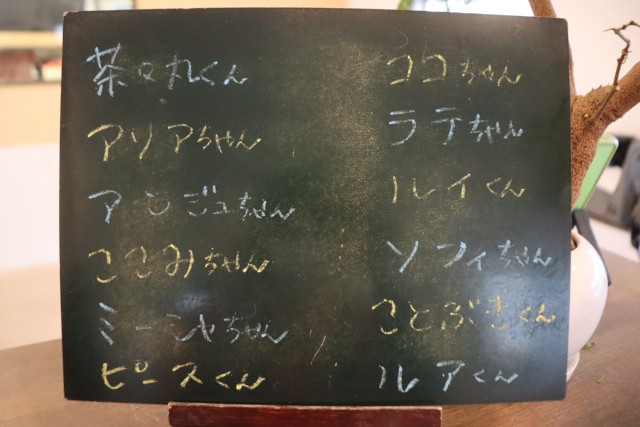 茶々丸くん
アリアちゃん
アンジュちゃん
ここみちゃん
ミーシャちゃん
ピースくん
ココちゃん
ラテちゃん
ルイくん
ソフィちゃん
ことぶきくん
ルアくん